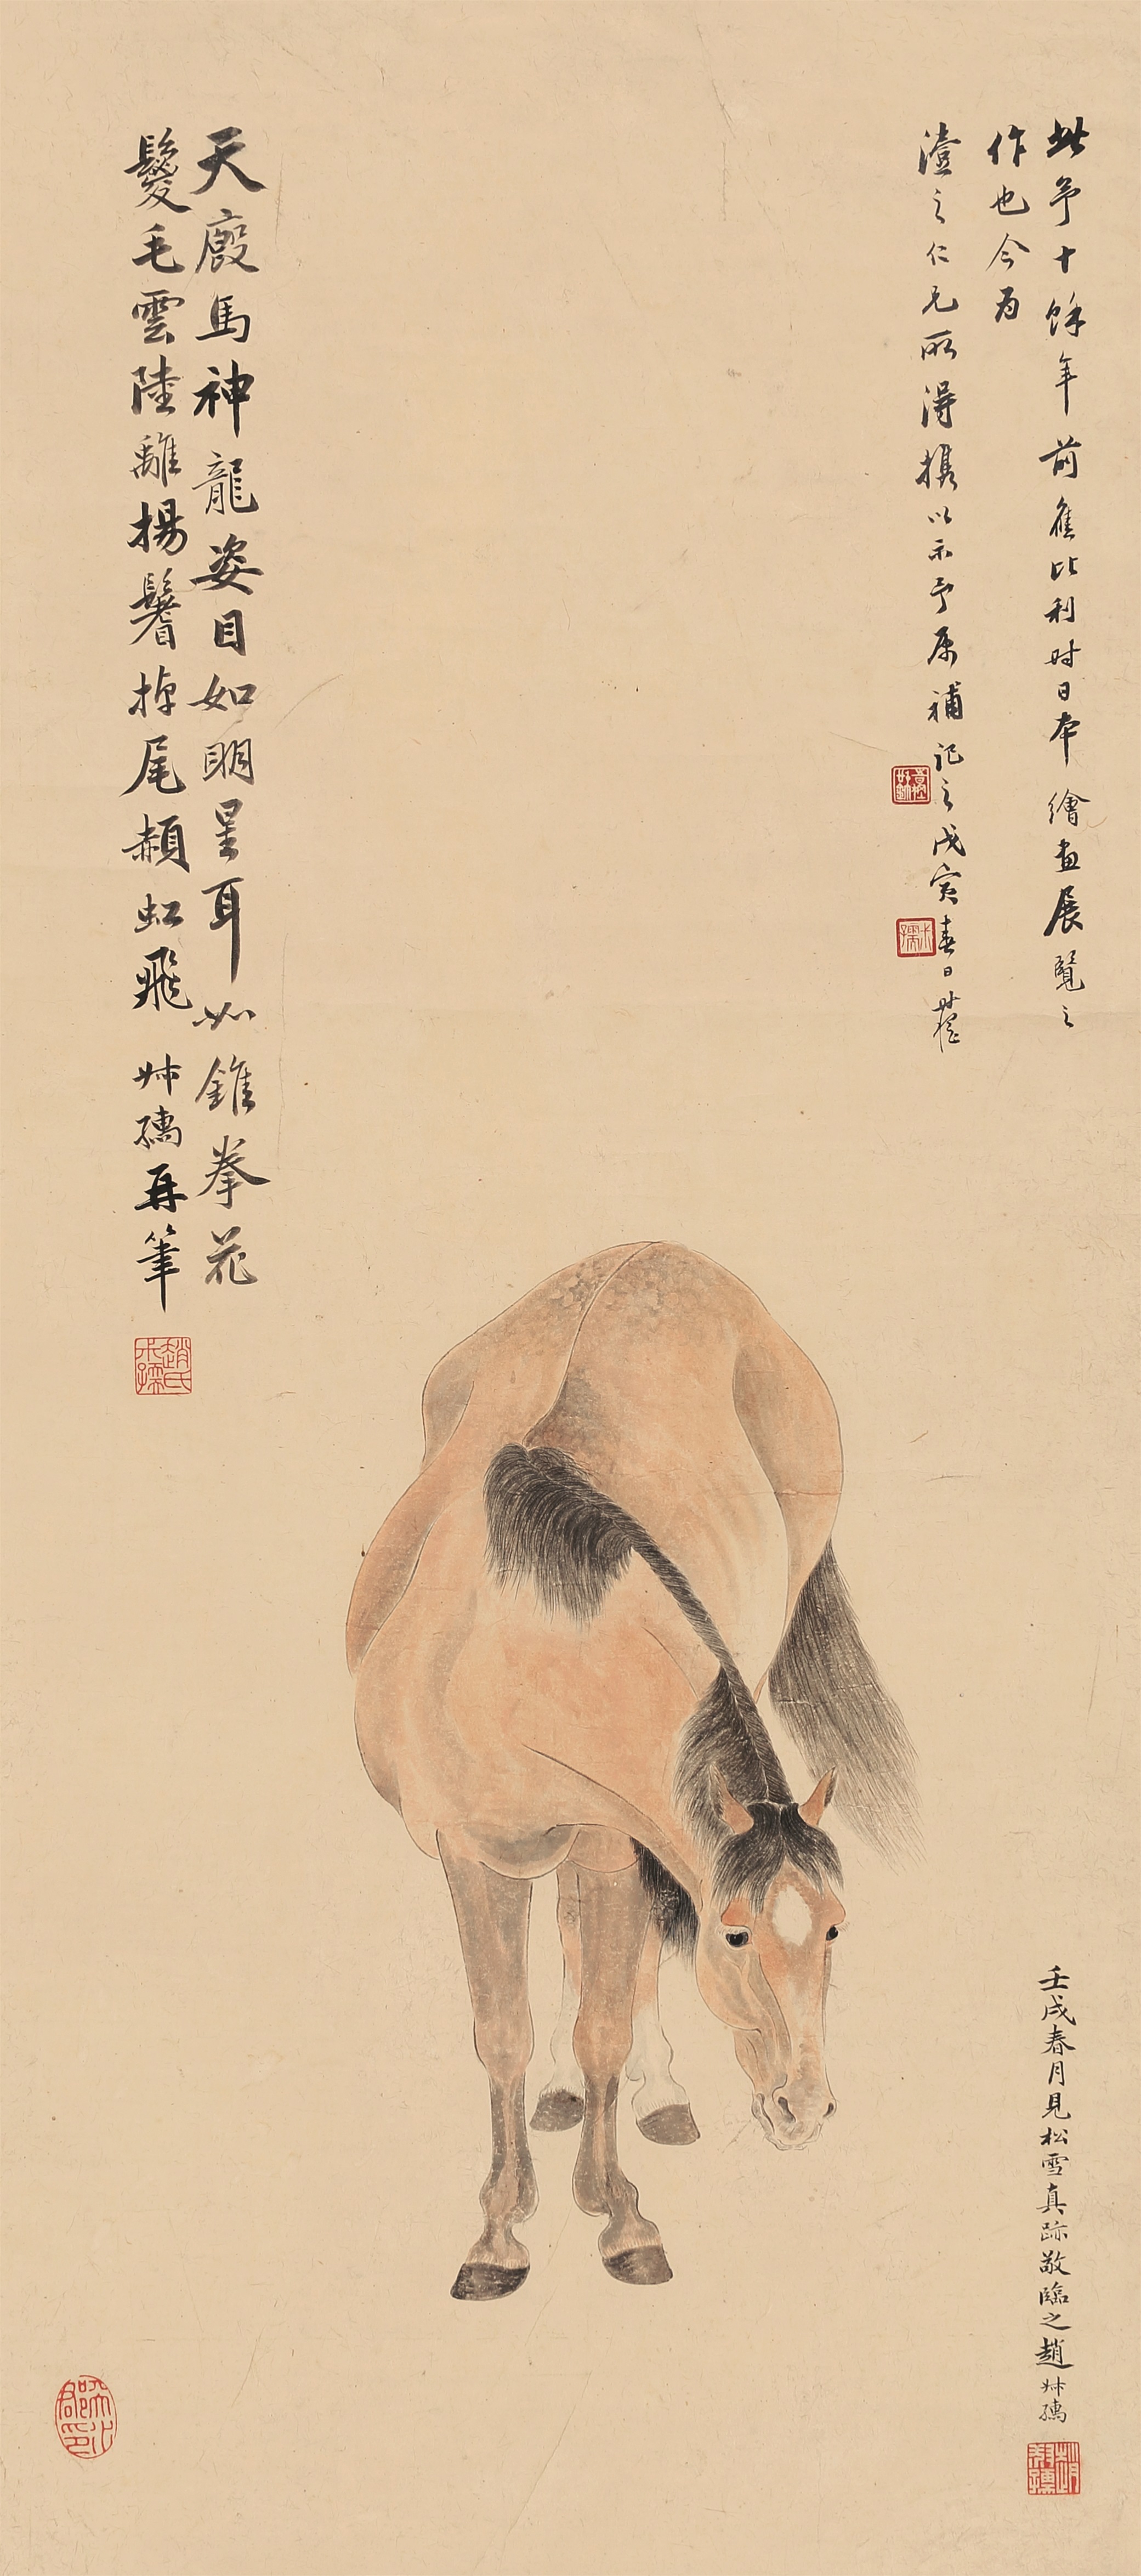 此予十餘年前應比利时日本繪畫展覽之
作也今为
澧之仁兄所得携以示予属補記之戊寅春日
天廄馬神龍姿目如明星耳如錐拳花
鬉毛雲陸離揚鬐掉尾頳虹飛 叔孺再筆
趙氏叔孺
壬戌春月見松雪真跡敬臨之趙叔孺